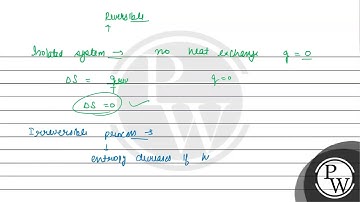 Reversible
Isolated system → no heat exchange q = 0
ΔS = qrev/T q=0
ΔS = 0 ✓
Irreversible process →
entropy decreases if w
PW
PW